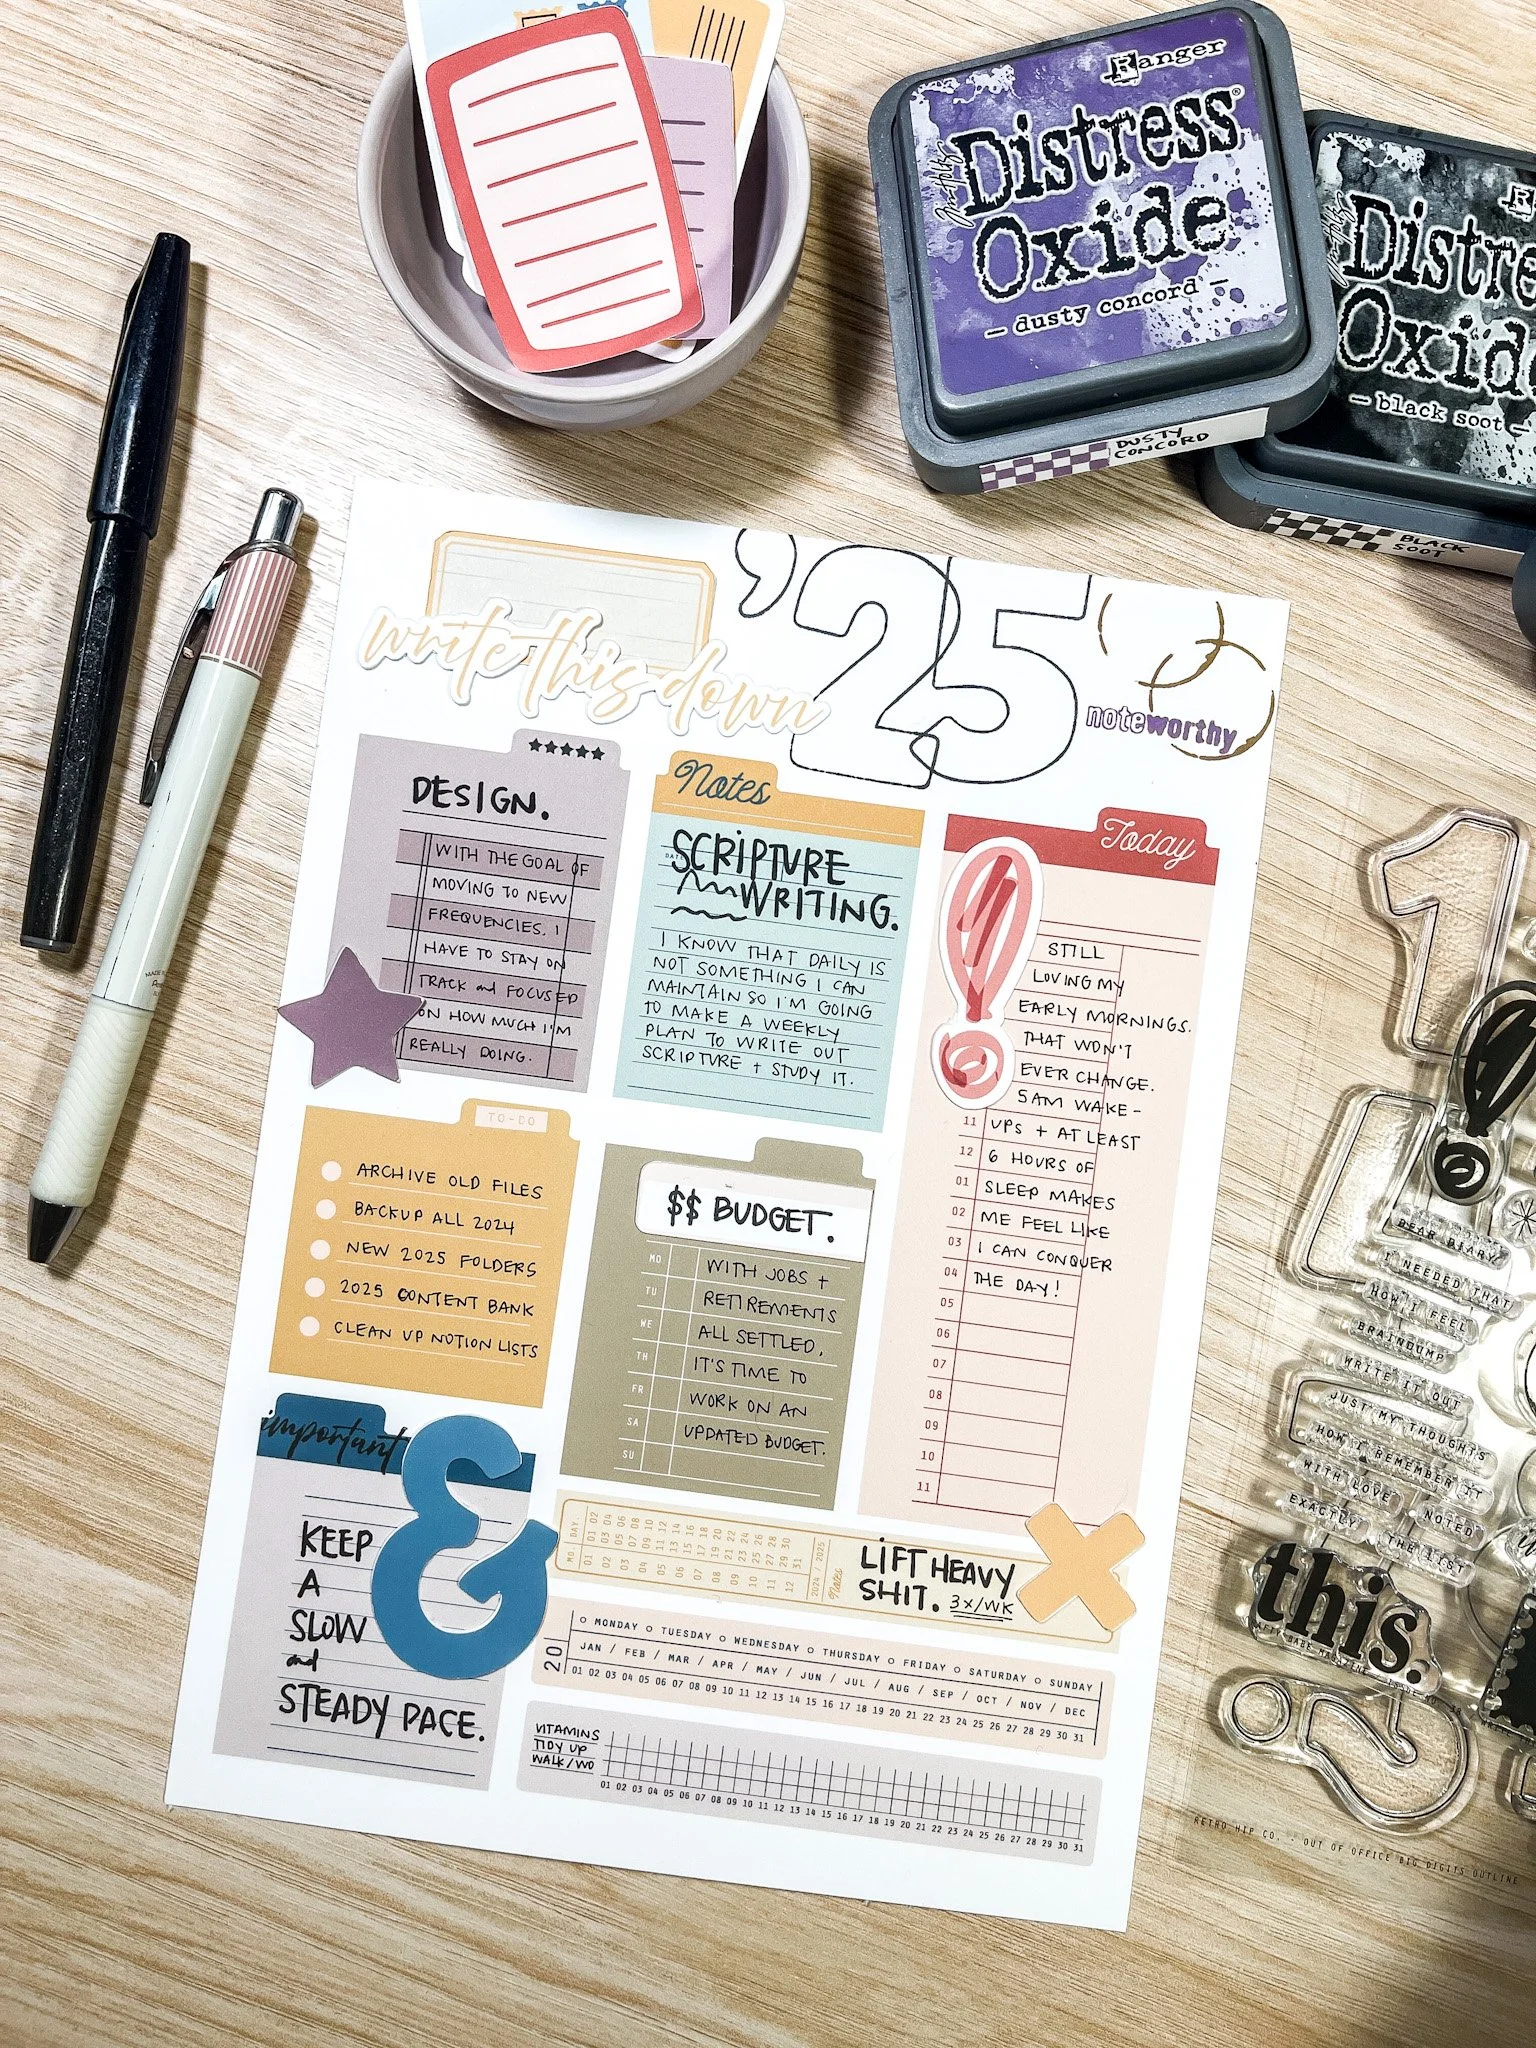 Ranger
Distress®
Oxide
— dusty concord —
Tim Holtz
DUSTY
CONCORD
Distre
Oxid
— black soot —
BLACK
SOOT
'25
write this down
noteworthy
DESIGN.
WITH THE GOAL OF
MOVING TO NEW
FREQUENCIES. I
HAVE TO STAY ON
TRACK and FOCUSED
ON HOW MUCH I'M
REALLY DOING.
Notes
SCRIPTURE
WRITING.
I KNOW THAT DAILY IS
NOT SOMETHING I CAN
MAINTAIN SO I'M GOING
TO MAKE A WEEKLY
PLAN TO WRITE OUT
SCRIPTURE + STUDY IT.
Today
STILL
LOVING MY
EARLY MORNINGS.
THAT WON'T
EVER CHANGE.
5AM WAKE-
11 UPS + AT LEAST
12 6 HOURS OF
01 SLEEP MAKES
02 ME FEEL LIKE
03 I CAN CONQUER
04 THE DAY!
05
06
07
08
09
10
11
TO-DO
ARCHIVE OLD FILES
BACKUP ALL 2024
NEW 2025 FOLDERS
2025 CONTENT BANK
CLEAN UP NOTION LISTS
$$ BUDGET.
MO WITH JOBS +
TU RETIREMENTS
WE ALL SETTLED,
TH IT'S TIME TO
FR WORK ON AN
SA UPDATED BUDGET.
SU
important
&
KEEP
A
SLOW
and
STEADY PACE.
MO. DAY.
01 02 03 04 05 06 07 08 09 10 11 12 13 14 15 16 17 18 19 20 21 22 23 24 25 26 27 28 29 30 31
01 02 03 04 05 06 07 08 09 10 11 12
2024 / 2025
Notes
LIFT HEAVY
SHIT. 3x/WK
20
MONDAY TUESDAY WEDNESDAY THURSDAY FRIDAY SATURDAY SUNDAY
JAN / FEB / MAR / APR / MAY / JUN / JUL / AUG / SEP / OCT / NOV / DEC
01 02 03 04 05 06 07 08 09 10 11 12 13 14 15 16 17 18 19 20 21 22 23 24 25 26 27 28 29 30 31
VITAMINS
TIDY UP
WALK/WO
01 02 03 04 05 06 07 08 09 10 11 12 13 14 15 16 17 18 19 20 21 22 23 24 25 26 27 28 29 30 31
1
DEAR DIARY
I NEEDED THAT
HOW I FEEL
BRAINDUMP
WRITE IT OUT
JUST MY THOUGHTS
HOW I REMEMBER IT
WITH LOVE
NOTED
EXACTLY
THE LIST
this.
RETRO HIP CO. . OUT OF OFFICE BIG DIGITS OUTLINE